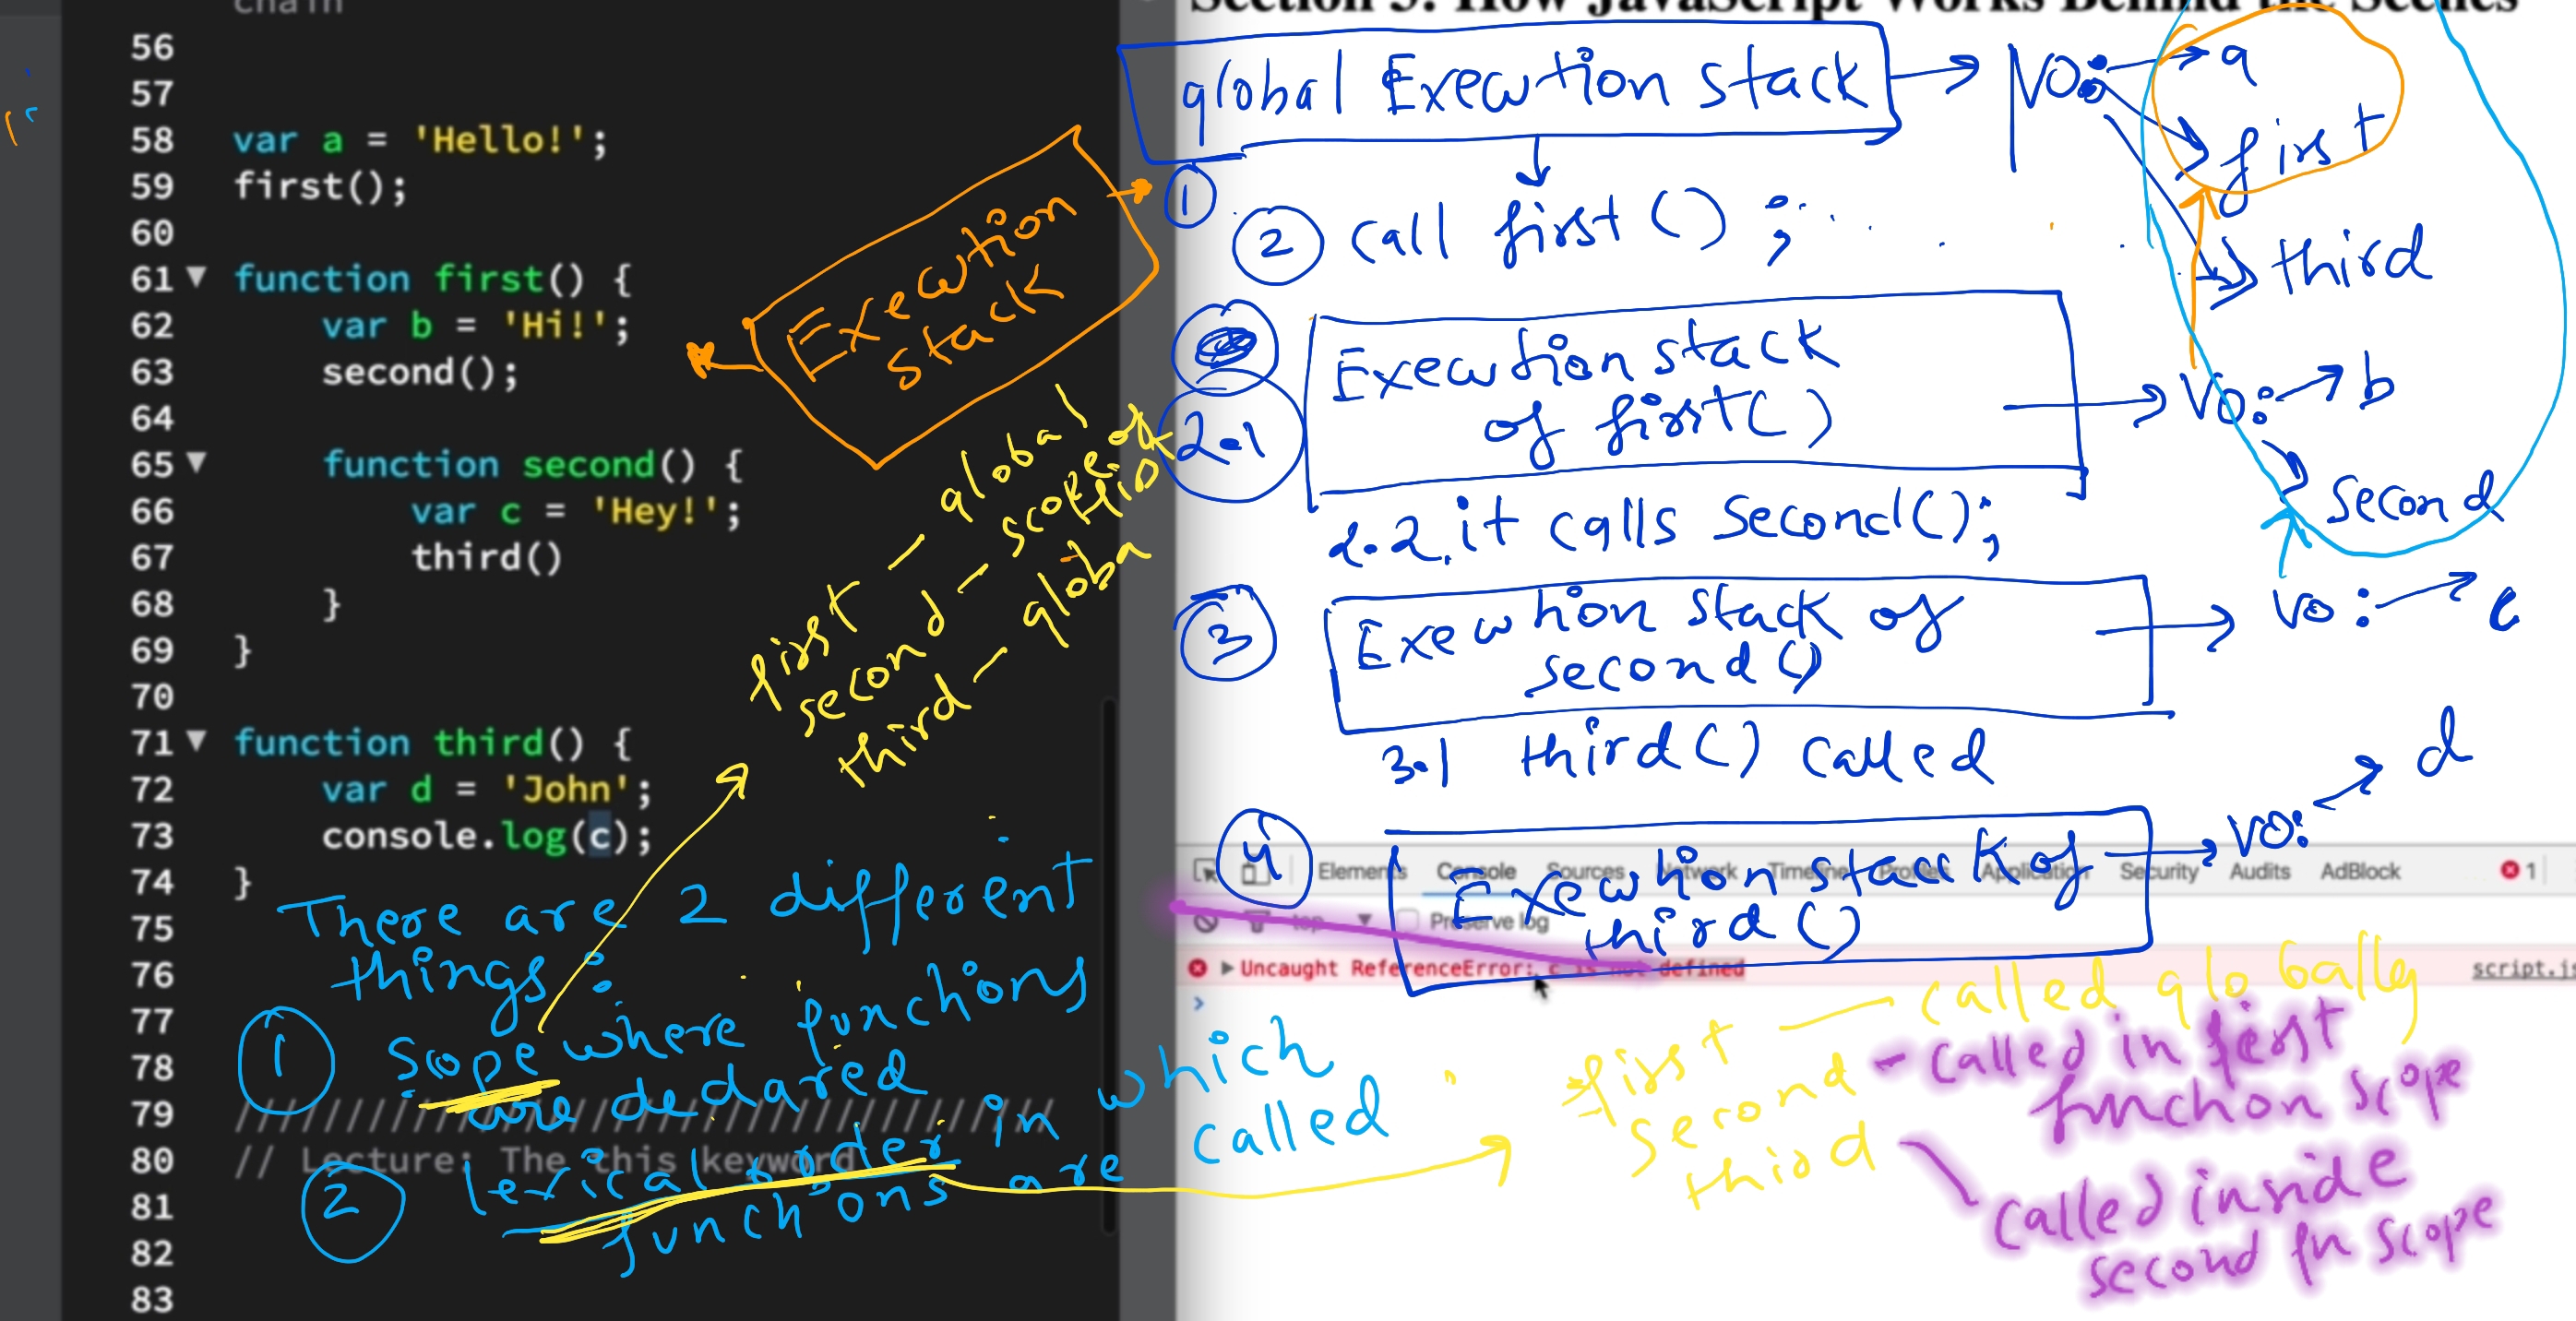 chain
Section 3: How JavaScript Works Behind the Scenes
56
57
58 var a = 'Hello!';
59 first();
60
61 function first() {
62 var b = 'Hi!';
63 second();
64
65 function second() {
66 var c = 'Hey!';
67 third()
68 }
69 }
70
71 function third() {
72 var d = 'John';
73 console.log(c);
74 }
75
76
77
78
79 ////////////////////////////////////
80 // Lecture: The this keyword
81
82
83
Execution
stack
first - global
second - scope of
third - globa
There are 2 different
things:
1 scope where functions
are declared
2 lexical order in which
functions are called
global Execution stack
VO:
a
first
third
1
2 call first();
2.1 Execution stack
of first()
VO: b
second
2.2. it calls second();
3 Execution stack of
second()
VO: c
3.1 third() called
4 Execution stack of
third()
VO: d
Elements Console Sources Network Timeline Profiles Application Security Audits AdBlock 1
top Preserve log
Uncaught ReferenceError: c is not defined script.js
first - called globally
second - called in first
function scope
third
called inside
second fn scope